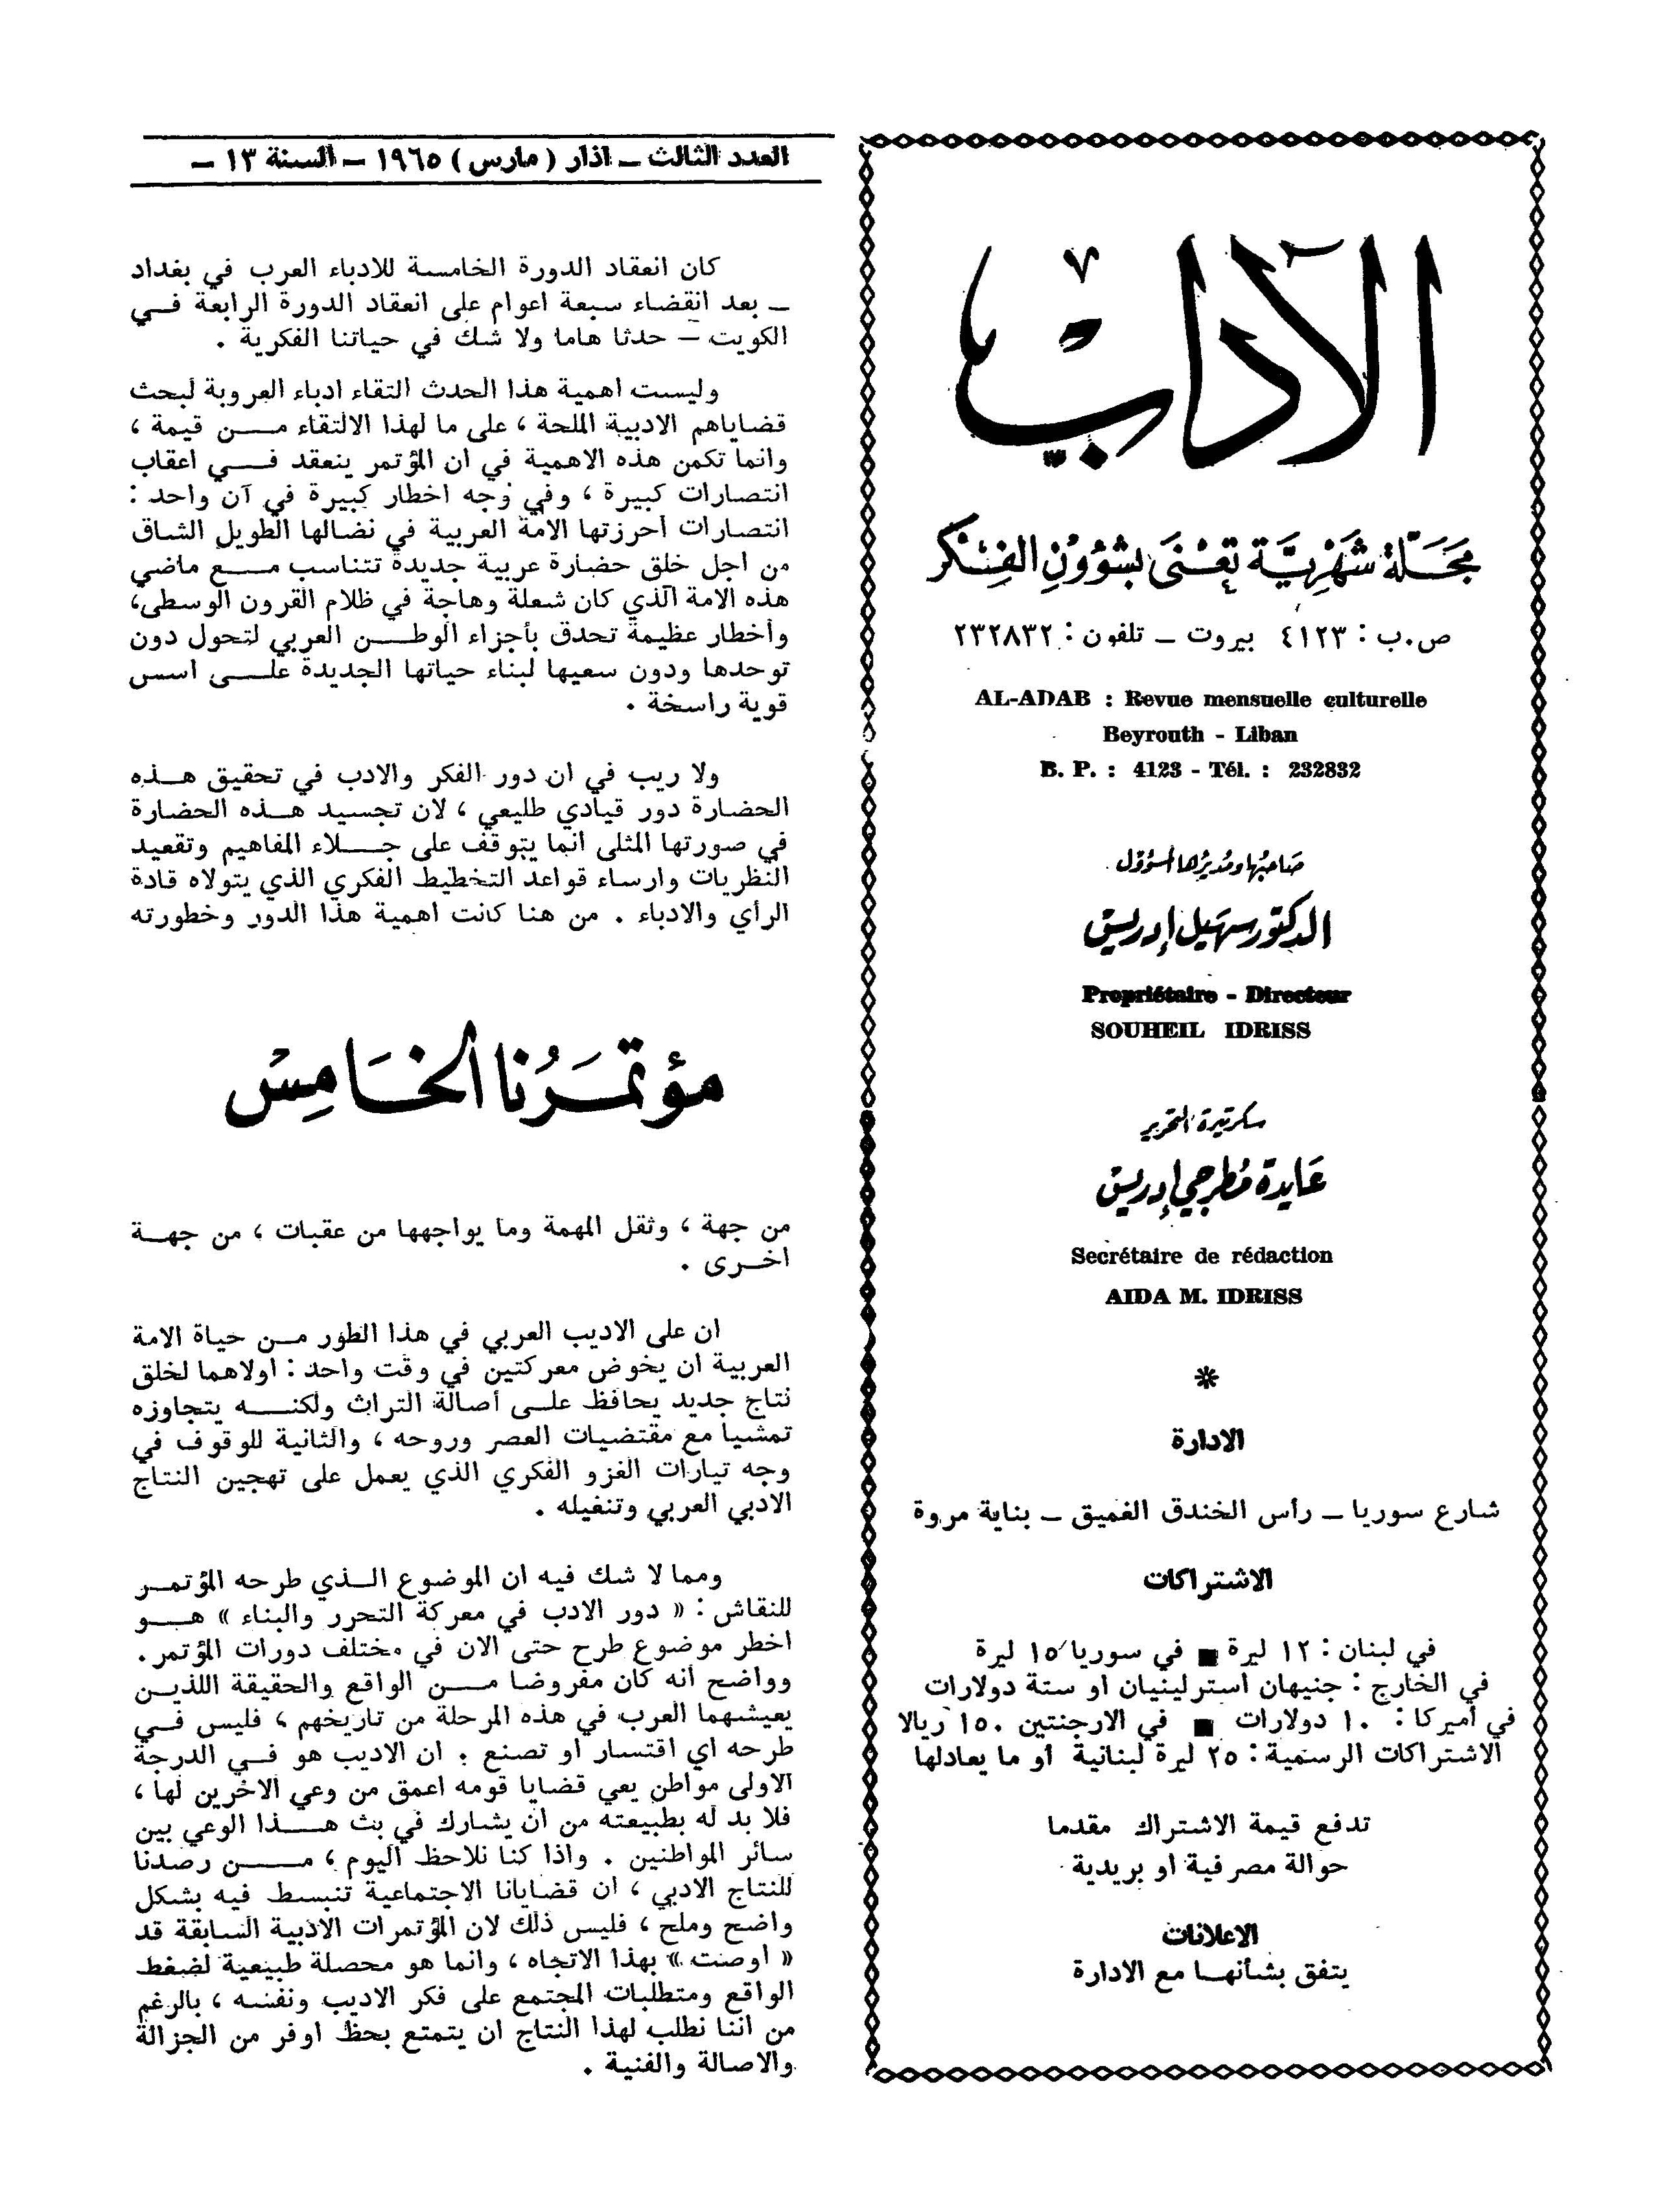 الآداب
مجلة شهرية تعنى بشؤون الفكر
ص.ب : ٤١٢٣ بيروت ـ تلفون : ٢٣٢٨٣٢
AL-ADAB : Revue mensuelle culturelle
Beyrouth - Liban
B. P. : 4123 - Tél. : 232832
صاحبها ومديرها المسؤول
الدكتور سهيل إدريس
Propriétaire - Directeur
SOUHEIL IDRISS
سكرتيرة التحرير
عايدة مطرجي إدريس
Secrétaire de rédaction
AIDA M. IDRISS
*
الادارة
شارع سوريا ـ رأس الخندق الغميق ـ بناية مروة
الاشتراكات
في لبنان : ١٢ ليرة ■ في سوريا ١٥ ليرة
في الخارج : جنيهان استرلينيان او ستة دولارات
في أميركا : ١٠ دولارات ■ في الارجنتين ١٥٠ ريالا
الاشتراكات الرسمية : ٢٥ ليرة لبنانية أو ما يعادلها
تدفع قيمة الاشتراك مقدما
حوالة مصرفية او بريدية
الاعلانات
يتفق بشأنها مع الادارة
العدد الثالث ـ اذار ( مارس ) ١٩٦٥ ـ السنة ١٣ ـ
كان انعقاد الدورة الخامسة للادباء العرب في بغداد
ـ بعد انقضاء سبعة اعوام على انعقاد الدورة الرابعة في
الكويت ـ حدثا هاما ولا شك في حياتنا الفكرية .
وليست اهمية هذا الحدث التقاء ادباء العروبة لبحث
قضاياهم الادبية الملحة ، على ما لهذا الالتقاء من قيمة ،
وانما تكمن هذه الاهمية في ان المؤتمر ينعقد في اعقاب
انتصارات كبيرة ، وفي وجه اخطار كبيرة في آن واحد :
انتصارات أحرزتها الامة العربية في نضالها الطويل الشاق
من اجل خلق حضارة عربية جديدة تتناسب مع ماضي
هذه الامة الذي كان شعلة وهاجة في ظلام القرون الوسطى،
وأخطار عظيمة تحدق بأجزاء الوطن العربي لتحول دون
توحدها ودون سعيها لبناء حياتها الجديدة على اسس
قوية راسخة .
ولا ريب في ان دور الفكر والادب في تحقيق هذه
الحضارة دور قيادي طليعي ، لان تجسيد هذه الحضارة
في صورتها المثلى انما يتوقف على جلاء المفاهيم وتقعيد
النظريات وارساء قواعد التخطيط الفكري الذي يتولاه قادة
الرأي والادباء . من هنا كانت اهمية هذا الدور وخطورته
مؤتمرنا الخامس
من جهة ، وثقل المهمة وما يواجهها من عقبات ، من جهة
اخرى .
ان على الاديب العربي في هذا الطور من حياة الامة
العربية ان يخوض معركتين في وقت واحد : اولاهما لخلق
نتاج جديد يحافظ على أصالة التراث ولكنه يتجاوزه
تمشيا مع مقتضيات العصر وروحه ، والثانية للوقوف في
وجه تيارات الغزو الفكري الذي يعمل على تهجين النتاج
الادبي العربي وتنفيله .
ومما لا شك فيه ان الموضوع الذي طرحه المؤتمر
للنقاش : « دور الادب في معركة التحرر والبناء » هو
اخطر موضوع طرح حتى الان في مختلف دورات المؤتمر.
وواضح أنه كان مفروضا من الواقع والحقيقة اللذين
يعيشهما العرب في هذه المرحلة من تاريخهم ، فليس في
طرحه اي اقتسار او تصنع . ان الاديب هو في الدرجة
الاولى مواطن يعي قضايا قومه اعمق من وعي الاخرين لها ،
فلا بد له بطبيعته من ان يشارك في بث هذا الوعي بين
سائر المواطنين . واذا كنا نلاحظ اليوم ، من رصدنا
للنتاج الادبي ، ان قضايانا الاجتماعية تنبسط فيه بشكل
واضح وملح ، فليس ذلك لان المؤتمرات الادبية السابقة قد
« اوصت » بهذا الاتجاه ، وانما هو محصلة طبيعية لضغط
الواقع ومتطلبات المجتمع على فكر الاديب ونفسه ، بالرغم
من اننا نطلب لهذا النتاج ان يتمتع بحظ اوفر من الجزالة
والاصالة والفنية .